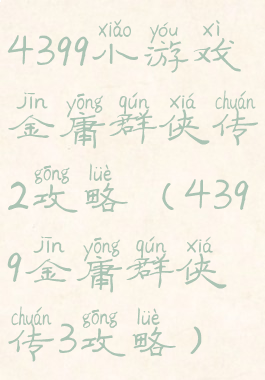 xiǎo yóu xì
4399小游戏
jīn yōng qún xiá chuán
金庸群侠传
gōng lüè
2攻略（439
jīn yōng qún xiá
9金庸群侠
chuán gōng lüè
传3攻略）